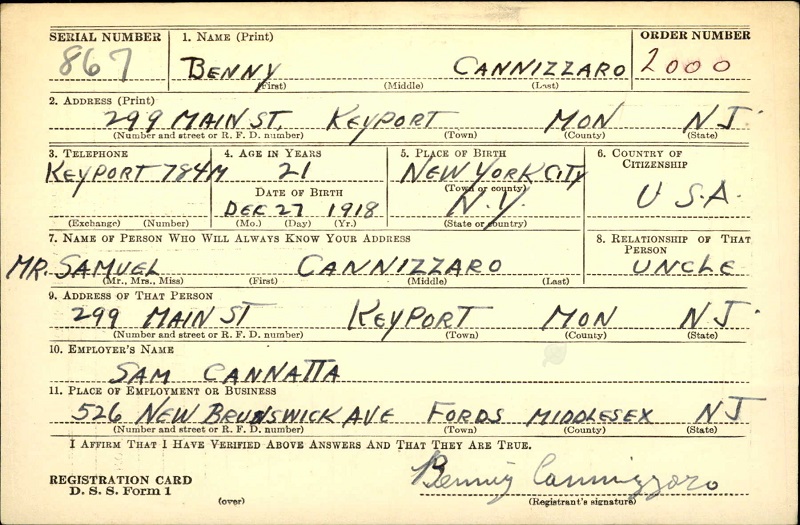 SERIAL NUMBER 1. NAME (Print) ORDER NUMBER
867 BENNY CANNIZZARO 2000
(First) (Middle) (Last)
2. ADDRESS (Print)
299 MAIN ST. KEYPORT MON NJ
(Number and street or R. F. D. number) (Town) (County) (State)
3. TELEPHONE 4. AGE IN YEARS 5. PLACE OF BIRTH 6. COUNTRY OF CITIZENSHIP
KEYPORT 784M 21 NEW YORK CITY U S.A.
DATE OF BIRTH (Town or county)
DEC 27 1918 N.Y.
(Exchange) (Number) (Mo.) (Day) (Yr.) (State or country)
7. NAME OF PERSON WHO WILL ALWAYS KNOW YOUR ADDRESS 8. RELATIONSHIP OF THAT PERSON
MR. SAMUEL CANNIZZARO UNCLE
(Mr., Mrs., Miss) (First) (Middle) (Last)
9. ADDRESS OF THAT PERSON
299 MAIN ST KEYPORT MON NJ
(Number and street or R. F. D. number) (Town) (County) (State)
10. EMPLOYER'S NAME
SAM CANNATTA
11. PLACE OF EMPLOYMENT OR BUSINESS
526 NEW BRUNSWICK AVE FORDS MIDDLESEX NJ
(Number and street or R. F. D. number) (Town) (County) (State)
I AFFIRM THAT I HAVE VERIFIED ABOVE ANSWERS AND THAT THEY ARE TRUE.
REGISTRATION CARD Benny Cannizzaro
D. S. S. Form 1 (over) (Registrant's signature)